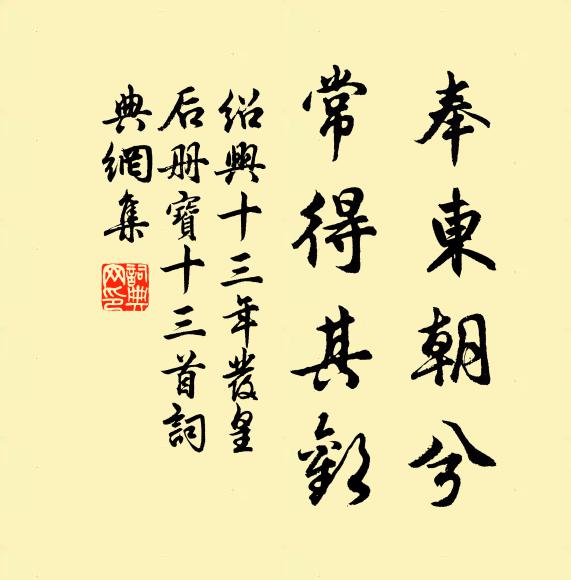 奉東朝兮
常得其歡
紹興十三年發皇
后册寶十三首詞
典網集
詞典网印